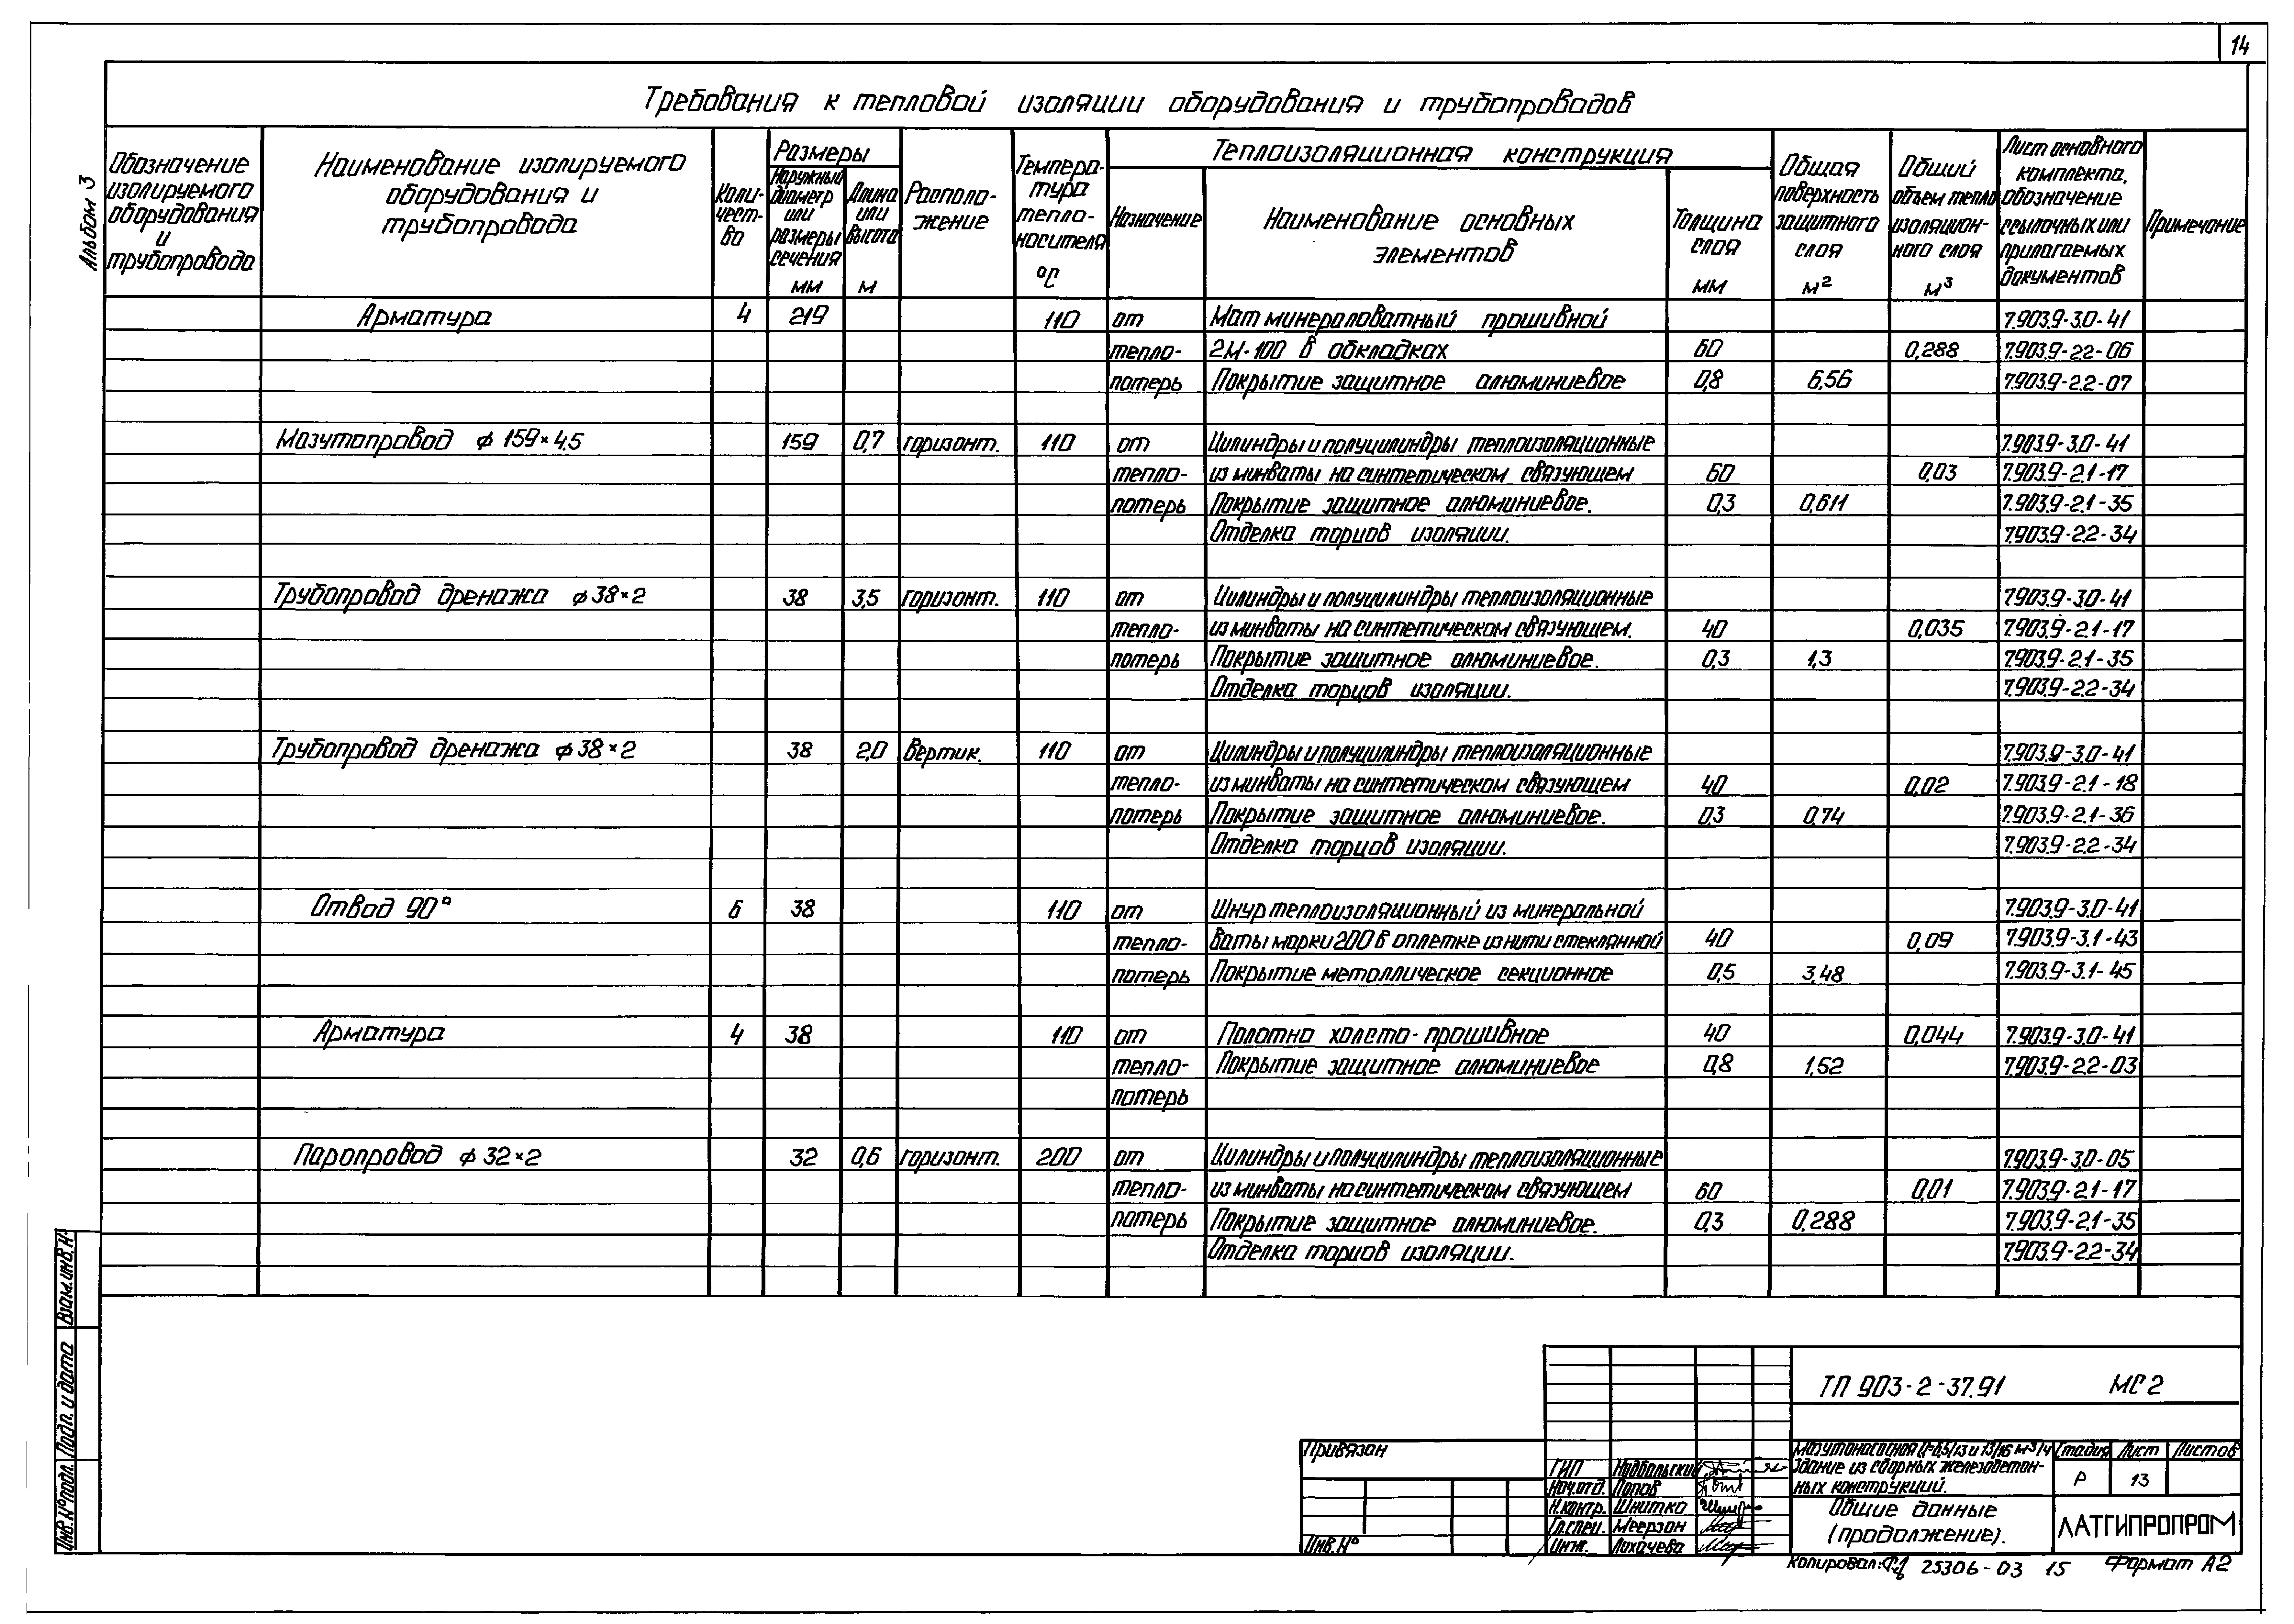 14
Альбом 3
Требования к тепловой изоляции оборудования и трубопроводов
Обозначение изолируемого оборудования и трубопровода
Наименование изолируемого оборудования и трубопровода
Количест-во
Размеры
Наружный диаметр или размеры сечения мм
Длина или высота м
Располо-жение
Темпера-тура тепло-носителя °С
Теплоизоляционная конструкция
Назначение
Наименование основных элементов
Толщина слоя мм
Общая поверхность защитного слоя м²
Общий объем тепло изоляцион-ного слоя м³
Лист основного комплекта, обозначение ссылочных или прилагаемых документов
Примечание
Арматура 4 219 110 от Мат минераловатный прошивной 7.903.9-3.0-41
тепло- 2М-100 в обкладках 60 0,288 7.903.9-2.2-06
потерь Покрытие защитное алюминиевое 0,8 6,56 7.903.9-2.2-07
Мазутопровод ϕ 159×4,5 159 0,7 горизонт. 110 от Цилиндры и полуцилиндры теплоизоляционные 7.903.9-3.0-41
тепло- из минваты на синтетическом связующем 60 0,03 7.903.9-2.1-17
потерь Покрытие защитное алюминиевое. 0,3 0,611 7.903.9-2.1-35
Отделка торцов изоляции. 7.903.9-2.2-34
Трубопровод дренажа ϕ38×2 38 3,5 горизонт. 110 от Цилиндры и полуцилиндры теплоизоляционные 7.903.9-3.0-41
тепло- из минваты на синтетическом связующем. 40 0,035 7.903.9-2.1-17
потерь Покрытие защитное алюминиевое. 0,3 1,3 7.903.9-2.1-35
Отделка торцов изоляции. 7.903.9-2.2-34
Трубопровод дренажа ϕ38×2 38 2,0 вертик. 110 от Цилиндры и полуцилиндры теплоизоляционные 7.903.9-3.0-41
тепло- из минваты на синтетическом связующем 40 0,02 7.903.9-2.1-18
потерь Покрытие защитное алюминиевое. 0,3 0,74 7.903.9-2.1-36
Отделка торцов изоляции. 7.903.9-2.2-34
Отвод 90° 6 38 110 от Шнур теплоизоляционный из минеральной 7.903.9-3.0-41
тепло- ваты марки 200 в оплетке из нити стеклянной 40 0,09 7.903.9-3.1-43
потерь Покрытие металлическое секционное 0,5 3,48 7.903.9-3.1-45
Арматура 4 38 110 от Полотно холсто-прошивное 40 0,044 7.903.9-3.0-41
тепло- Покрытие защитное алюминиевое 0,8 1,52 7.903.9-2.2-03
потерь
Паропровод ϕ 32×2 32 0,6 горизонт. 200 от Цилиндры и полуцилиндры теплоизоляционные 7.903.9-3.0-05
тепло- из минваты на синтетическом связующем 60 0,01 7.903.9-2.1-17
потерь Покрытие защитное алюминиевое. 0,3 0,288 7.903.9-2.1-35
Отделка торцов изоляции. 7.903.9-2.2-34
Взам. инв. №
Подп. и дата
Инв. № подл.
ТП 903-2-37.91 МС2
Привязан
Инв. №
ГИП Надбальский
Нач.отд. Попов
Н.контр. Шнитко
Гл.спец. Меерзон
Инж. Лихачева
Мазутонасосная Q=6,5/13 и 13/16 м³/ч
Здание из сборных железобетон-
ных конструкций.
Стадия Лист Листов
Р 13
Общие данные
(продолжение).
ЛАТГИПРОПРОМ
Копировал: 25306-03 15 Формат А2